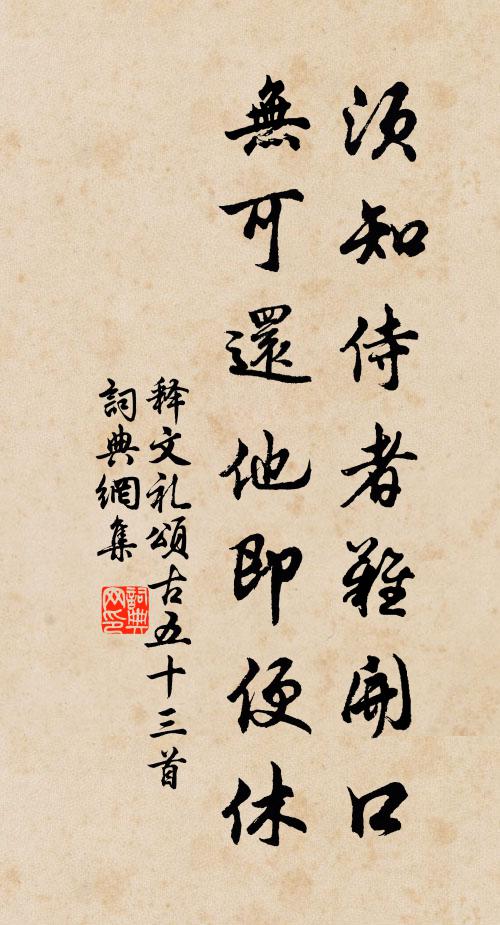 須知侍者難開口
無可還他即便休
释文礼頌古五十三首
詞典網集
詞典网印